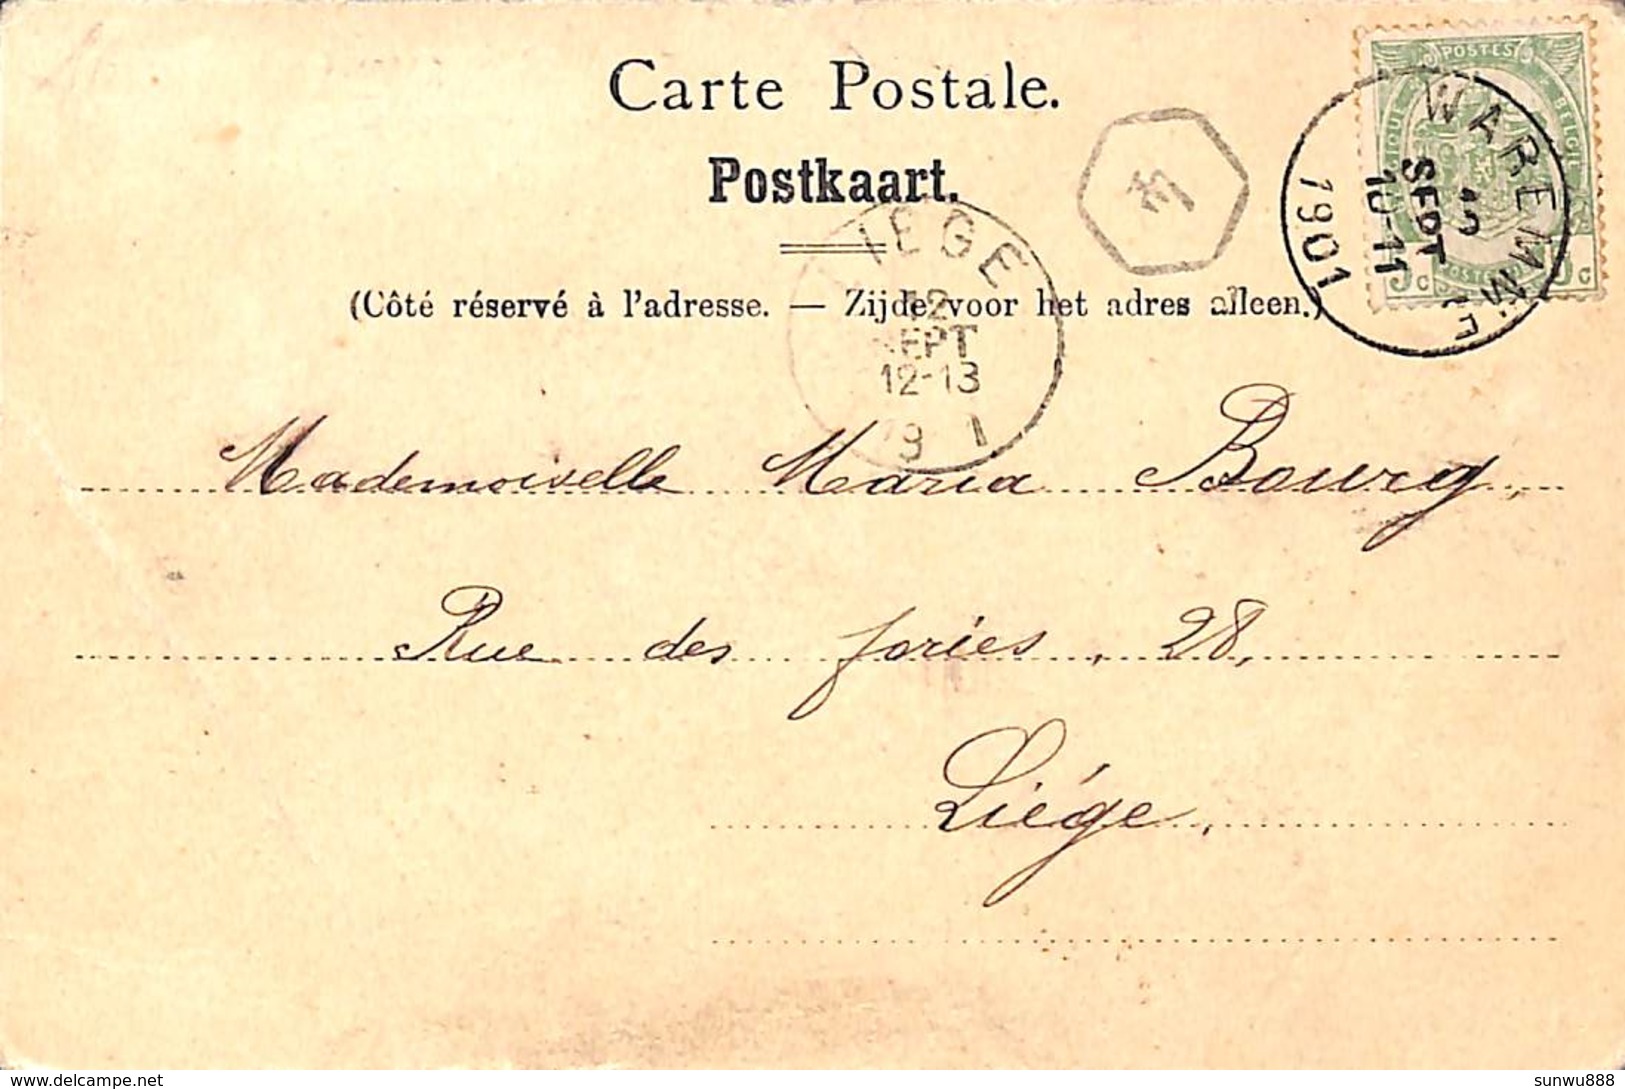 Carte Postale.
Postkaart.
(Côté réservé à l'adresse. — Zijde voor het adres alleen.)
POSTES
BELGIE
WAREMME
SEPT
10-11
1901
LIEGE
12
SEPT
12-13
Mademoiselle Maria Bourg,
Rue des fories, 28,
Liége,
sunwu888